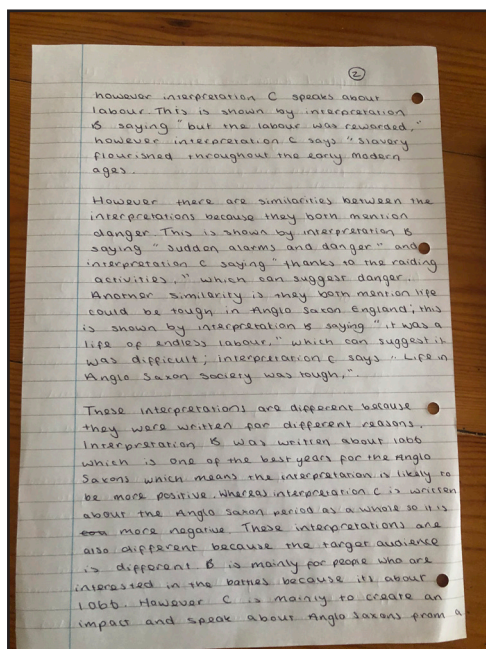 2
however interpretation C speaks about
labour. This is shown by interpretation
B saying "but the labour was rewarded,"
however interpretation C says "Slavery
flourished throughout the early modern
ages.
However there are similarities between the
interpretations because they both mention
danger. This is shown by interpretation B
saying "sudden alarms and danger" and
interpretation C saying "thanks to the raiding
activities," which can suggest danger.
Another similarity is they both mention life
could be tough in Anglo Saxon England; this
is shown by interpretation B saying "it was a
life of endless labour," which can suggest it
was difficult; interpretation C says "Life in
Anglo Saxon society was tough,".
These interpretations are different because
they were written for different reasons.
Interpretation B was written about 1066
which is one of the best years for the Anglo
Saxons which means the interpretation is likely to
be more positive. Whereas interpretation C is written
about the Anglo Saxon period as a whole so it is
more negative. These interpretations are
also different because the target audience
is different B is mainly for people who are
interested in the battles because its about
1066. However C is mainly to create an
impact and speak about Anglo Saxons from a